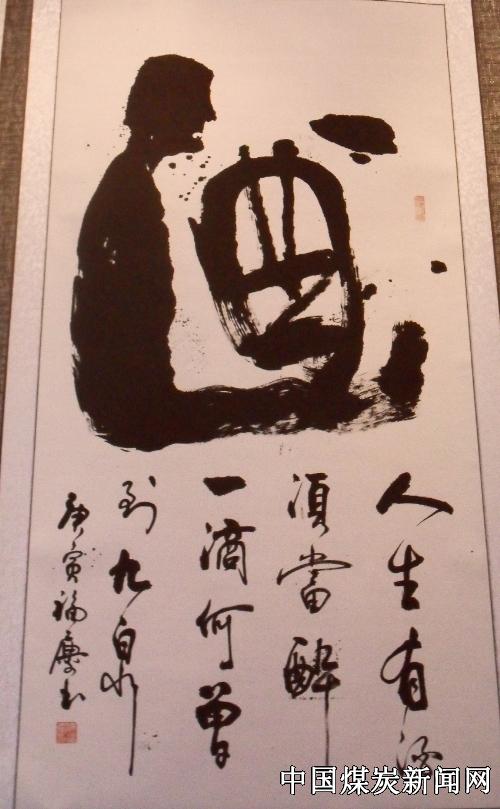 酒
人生有酒
須當醉
一滴何曾
到九泉
庚寅福慶书
中国煤炭新闻网